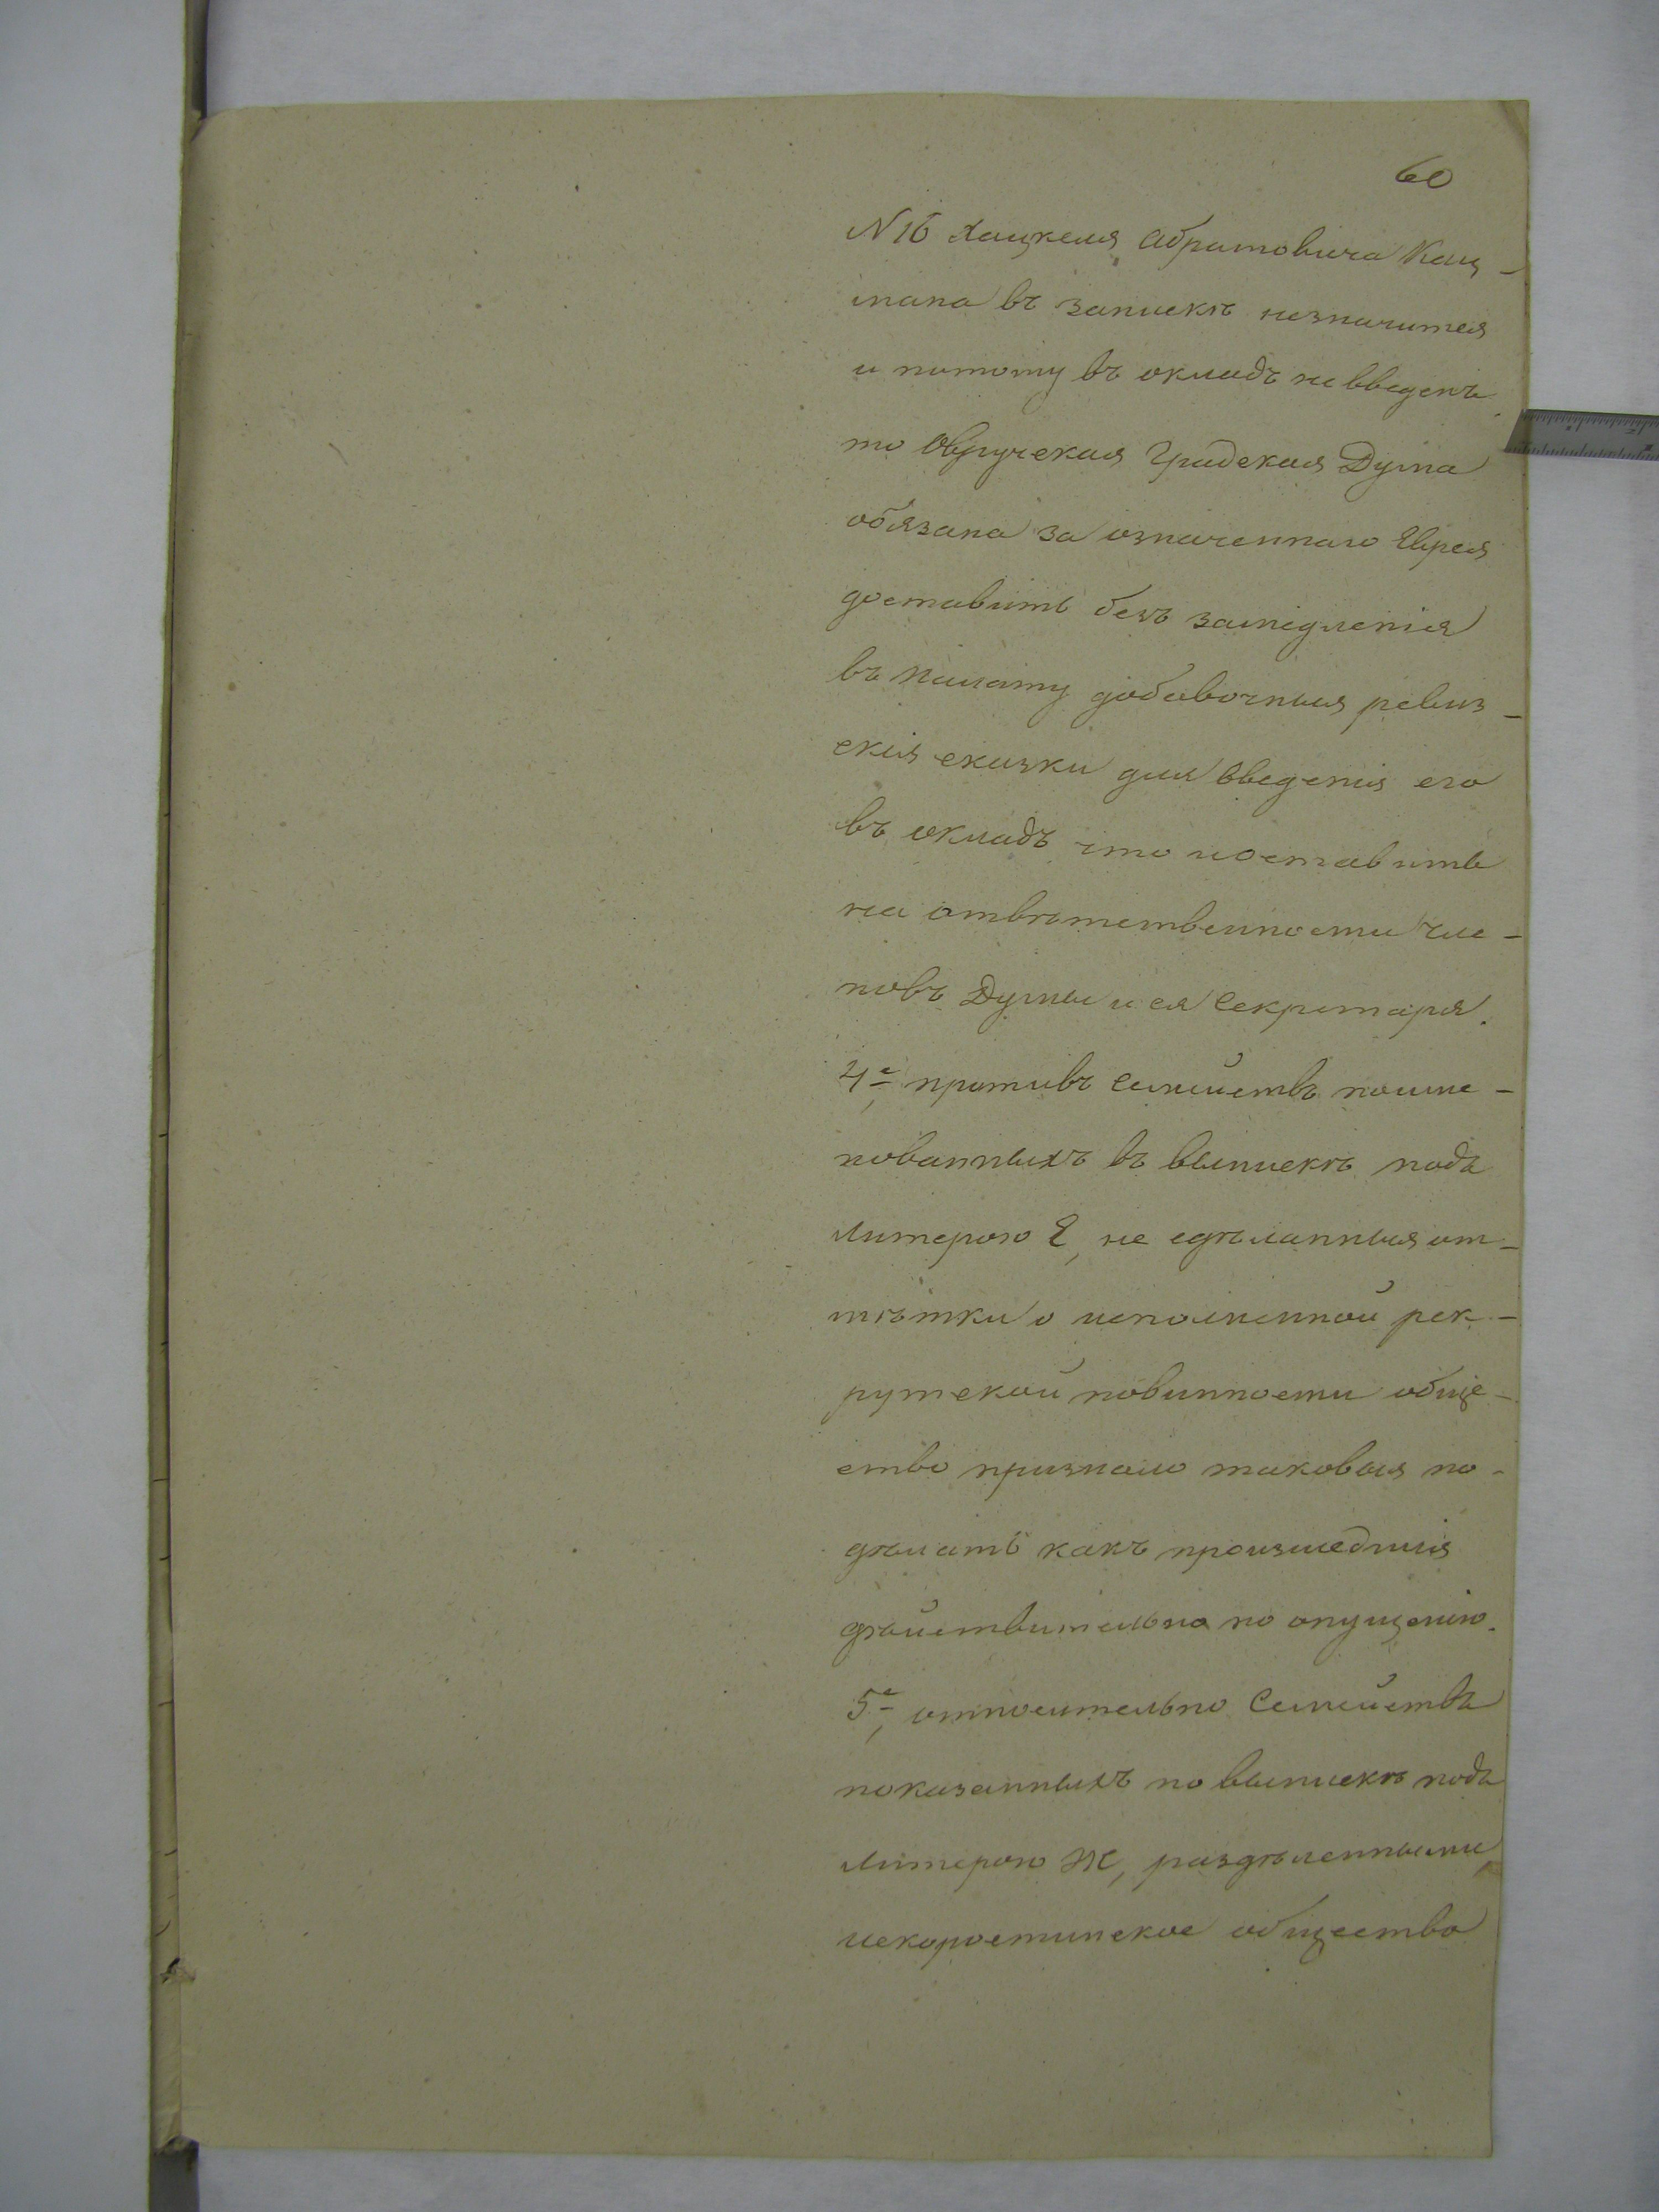 60
N 16 Хацкеля Абрамовича Кац-
мана въ запискѣ незначится
и потому въ окладъ не введенъ
то Овручская Градская Дума
обязана за означеннаго Еврея
доставить безъ замедленія
въ палату добавочныя ревиз-
скія сказки для введенія его
въ окладъ что и оставить
на отвѣтственности чле-
новъ Думы и ея Секретаря.
4е, противъ Семействъ поиме-
нованныхъ въ выпискѣ подъ
Литерою Е, не сдѣланныя от-
мѣтки о исполненной рек-
рутской повинности обще-
ство признало таковыя по-
дѣлать какъ произшедшія
дѣйствительно по опущенію.
5е, относительно Семействъ
показанныхъ по выпискѣ подъ
Литерою Ж, раздѣленными,
искоростинское общество